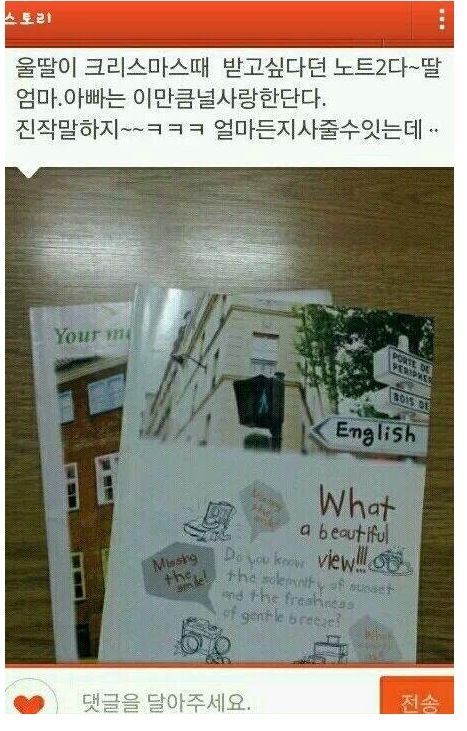 스토리
울딸이 크리스마스때 받고싶다던 노트2다~딸
엄마.아빠는 이만큼널사랑한단다.
진작말하지~~ㅋㅋㅋ 얼마든지사줄수잇는데 ··
Your
PORTE DE
PERIPHER
BOIS DE
English
What
a beautiful
view!!!
Missing
the
smile!
Do you know
the solemnity of sunset
and the freshness
of gentle breeze?
What
댓글을 달아주세요.
전송